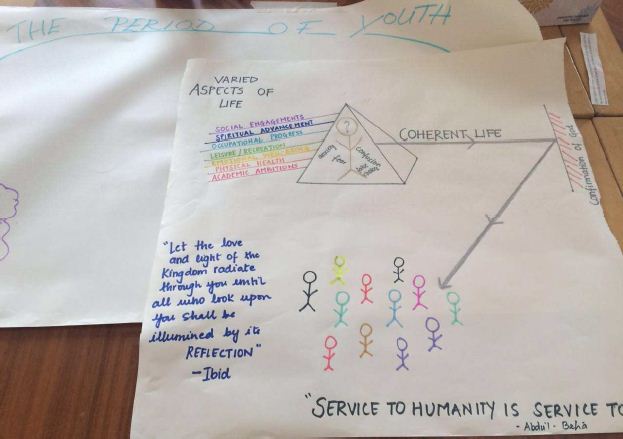 THE PERIOD OF YOUTH
VARIED
ASPECTS OF
LIFE
SOCIAL ENGAGEMENTS
SPIRITUAL ADVANCEMENT
OCCUPATIONAL PROGRESS
LEISURE/RECREATION
EMOTIONAL WELL-BEING
PHYSICAL HEALTH
ACADEMIC AMBITIONS
?
for
confusion
COHERENT LIFE
Confirmation of God
"Let the love
and light of the
Kingdom radiate
through you until
all who look upon
you shall be
illumined by its
REFLECTION"
-Ibid
"SERVICE TO HUMANITY IS SERVICE TO
- Abdu'l - Baha